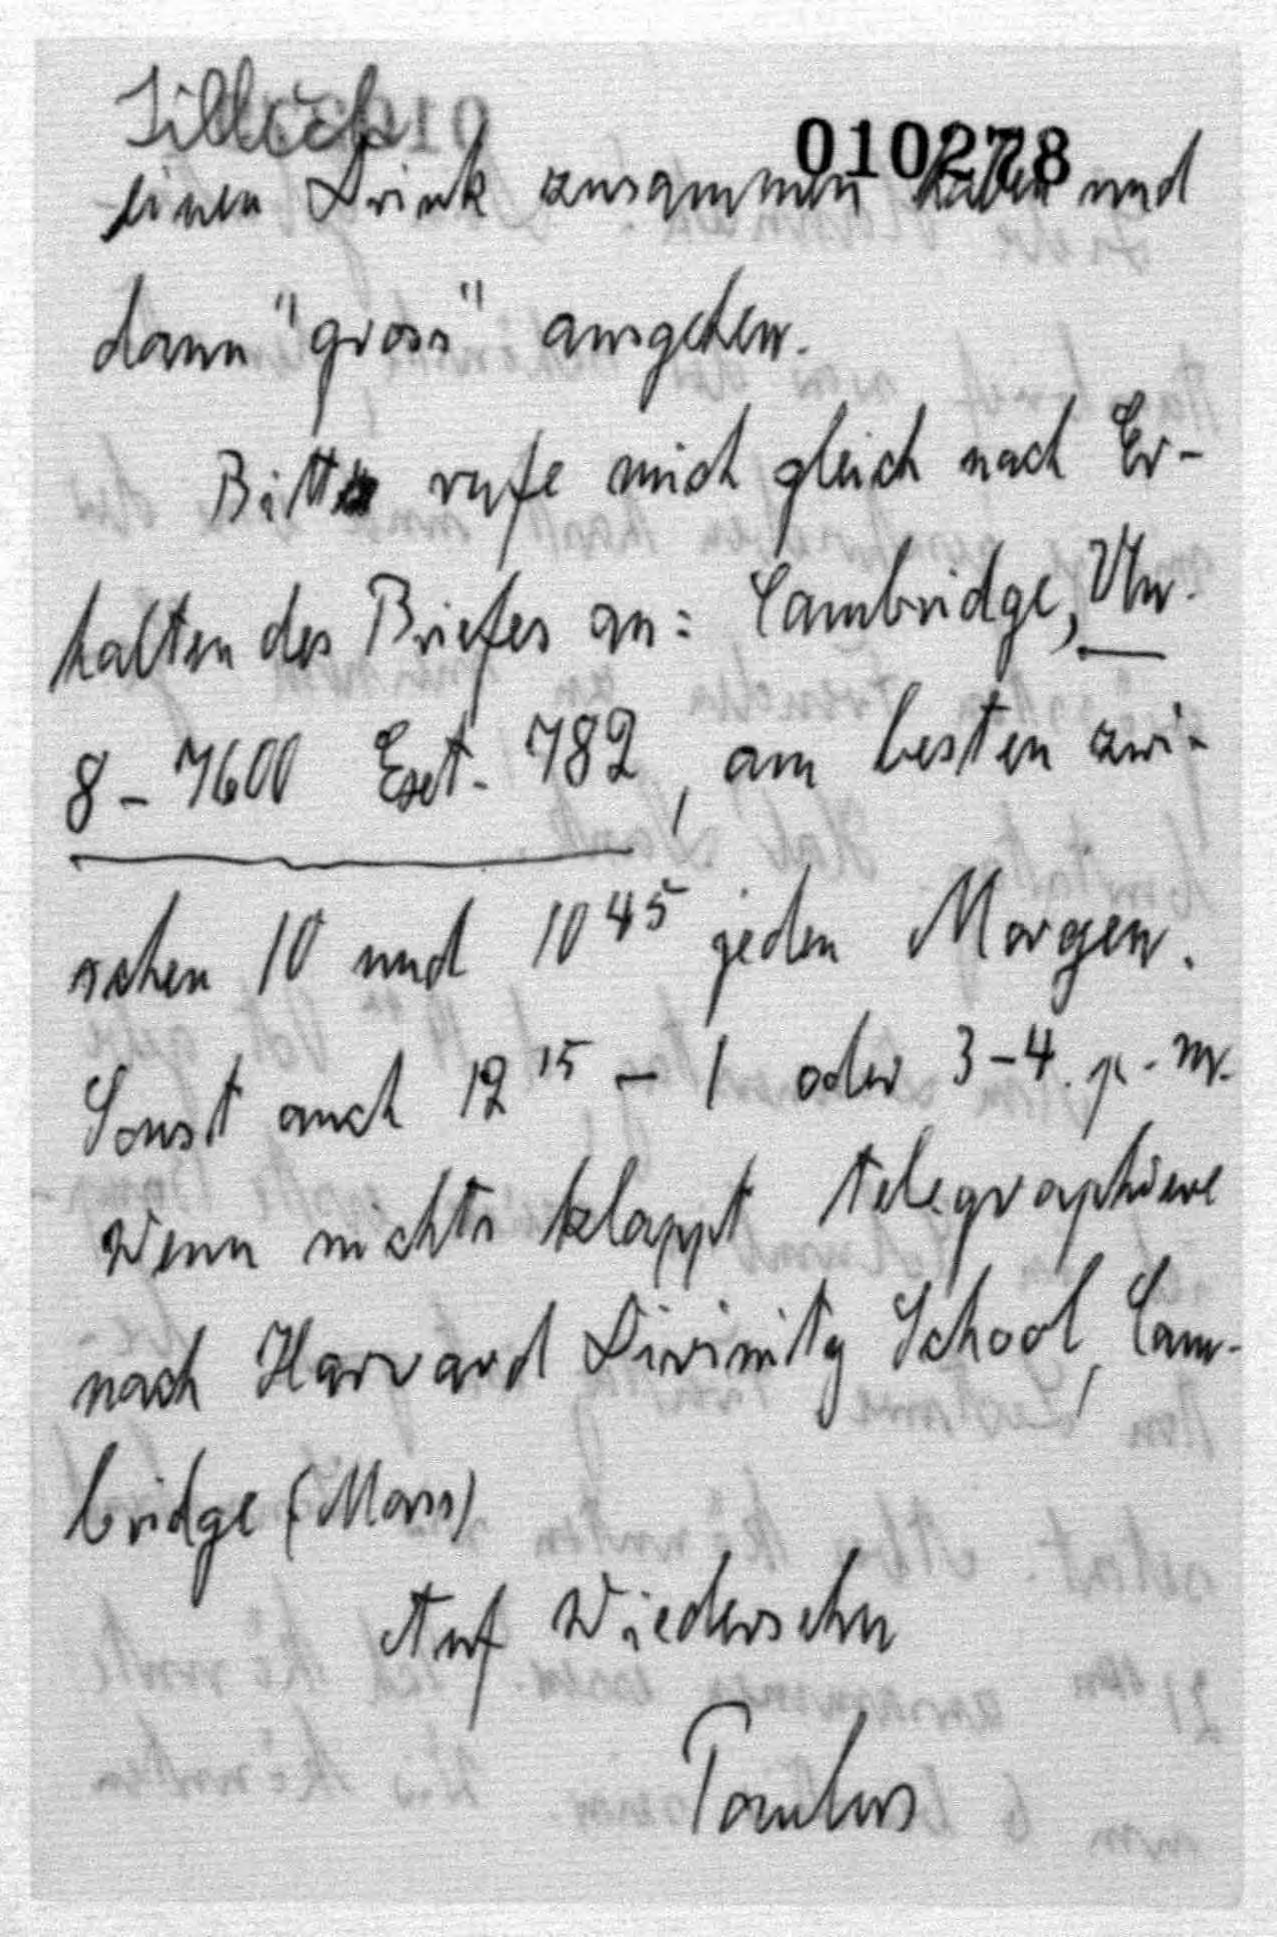 Tillich
010278
einen Drink zusammen haben und
dann "gross" ausgehen.
Bitte rufe mich gleich nach Er-
halten des Briefes an: Cambridge,
8-7600 Ext. 782, am besten zwi-
schen 10 und 10 45 jeden Morgen.
Sonst auch 12 15 - 1 oder 3-4 p.m.
Wenn nichts klappt telegraphiere
nach Harvard Divinity School, Cam-
bridge (Mass)
Auf Wiedersehn
Paulus